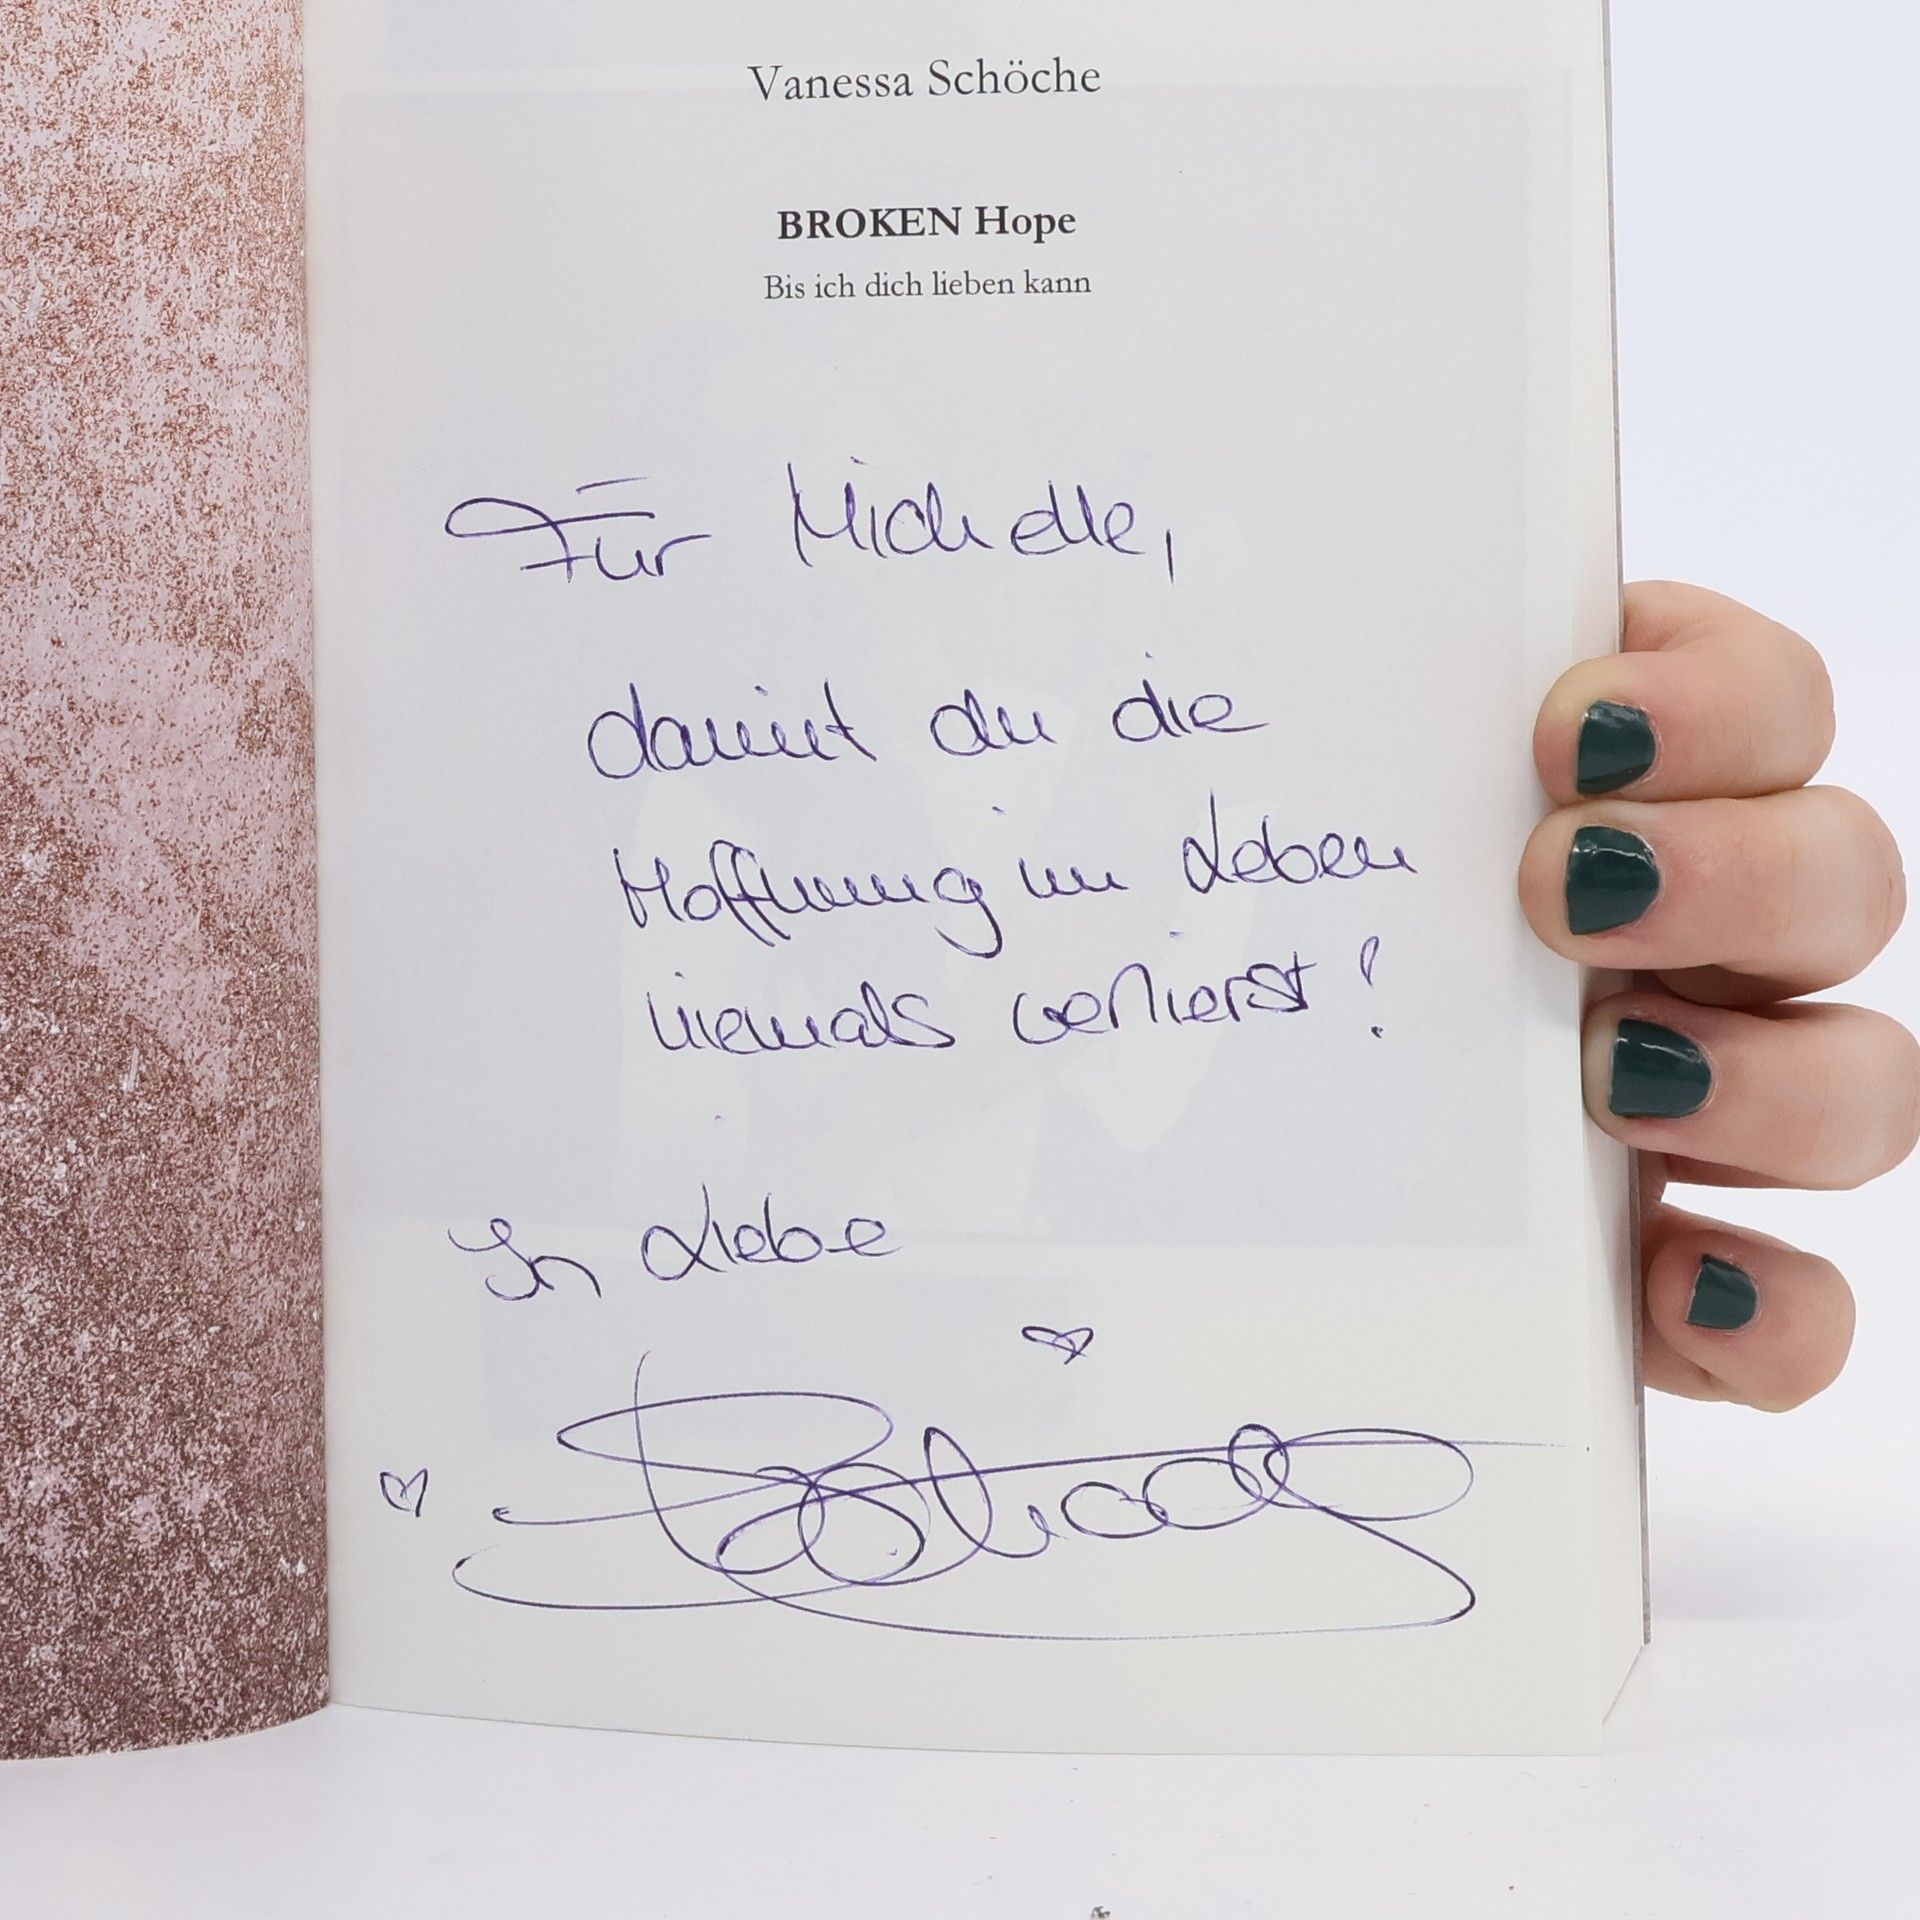 Vanessa Schöche
BROKEN Hope
Bis ich dich lieben kann
Für Michelle,
damit du die
Hoffnung im Leben
niemals verlierst!
In Liebe